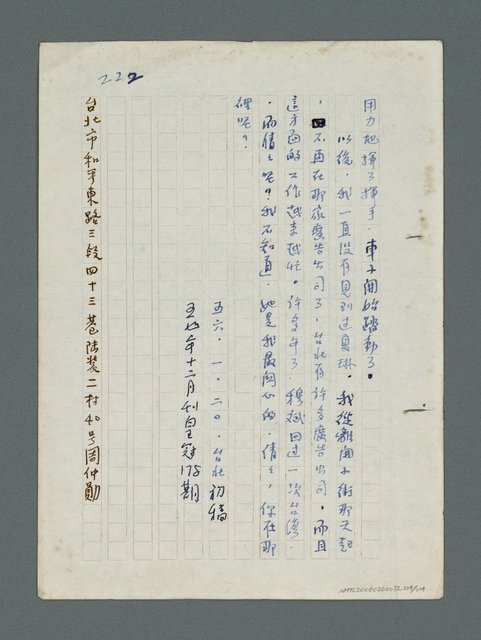 222
用力地揮了揮手，車子開始踏動了。
以後，我一直沒有見到過夏琳。我從離開子街那天起
，不再在那家廣告公司了，台北有許多廣告公司，而且
這方面的工作越來越忙。許多年了，穆斌回過一次台灣，
，而倩倩呢？我不知道，她是我最關心的，倩倩，你在那
裡呢？
五六．一．二〇．台北初稿
五七年十二月刊皇冠178期
台北市和平東路三段四十三巷陸裝二村40号周仲勳